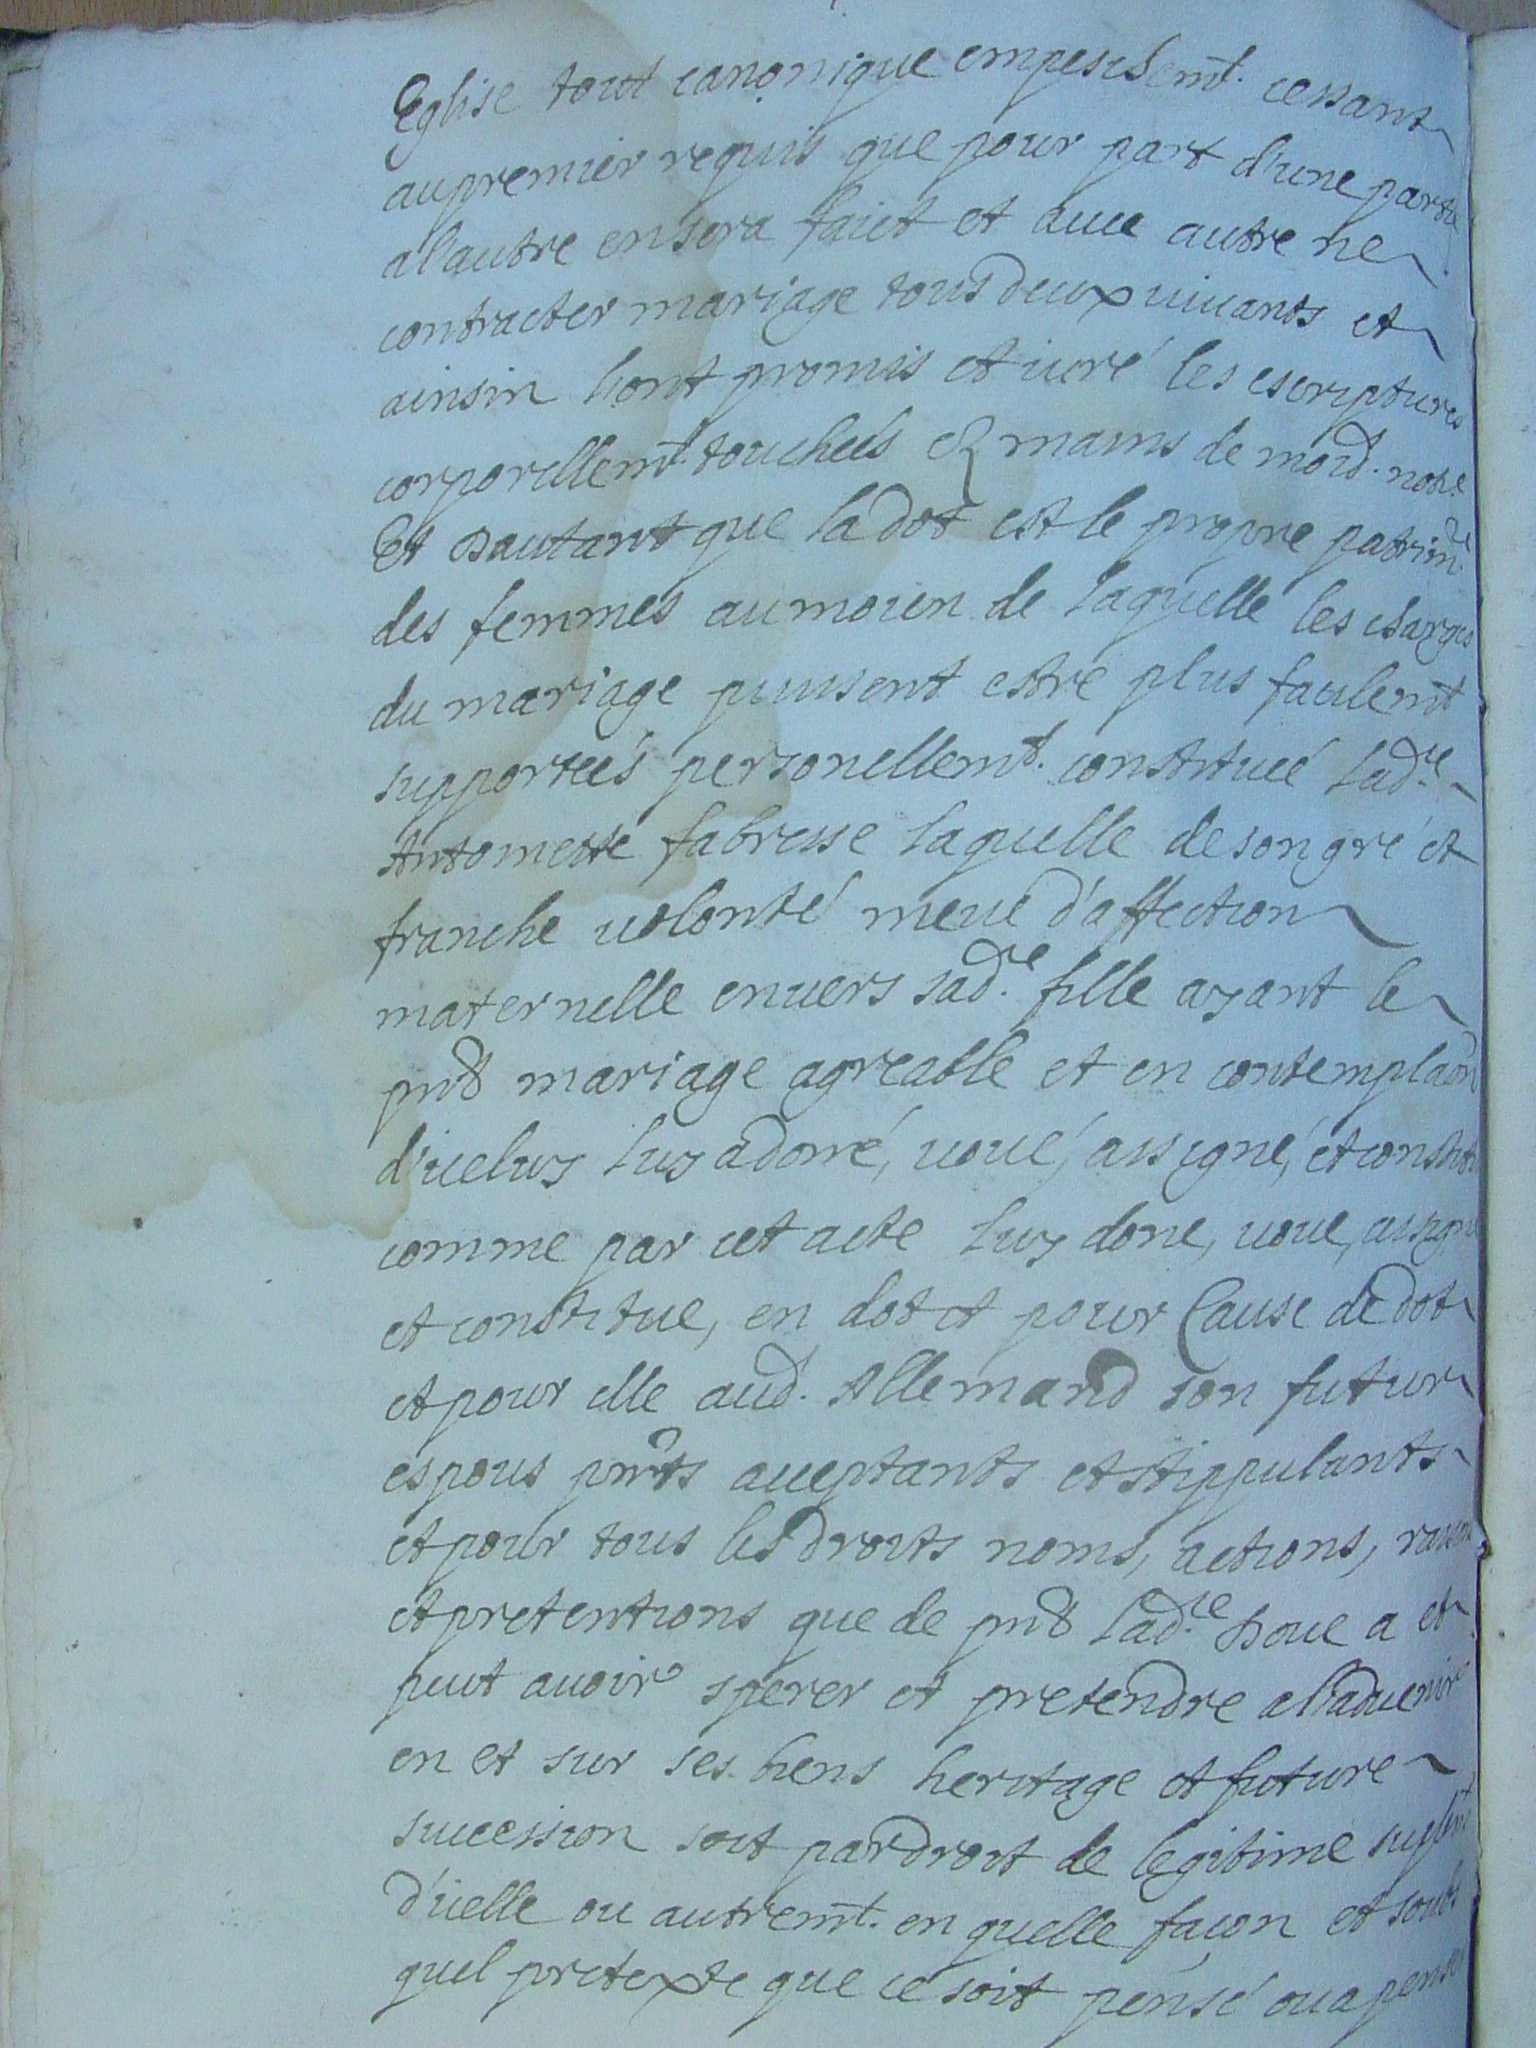 Eglise tout canonique empeschemt. cessant
au premier requis que pour part d'une partie
a l'autre en sera faict et avec autre ne
contracter mariage tous deux vivants et
ainsin hont promis et juré les escriptures
corporellemt. touchées ez mains de moid. notre.
Et dautant que la dot est le propre patrimne.
des femmes au moien de laquelle les charges
du mariage puissent estre plus facilemt
supportées personellemt. constituée lad.e
Antoinette fabresse laquelle de son gré et
franche volonté meue d'affection
maternelle envers sad.e fille ayant le
pnt mariage agreable et en contemplaon
d'iceluy luy a doné, voué, assigné, et constitué
comme par cet acte luy done, voue, assigne
et constitue, en dot et pour Cause de dot
et pour elle aud. Allemand son futur
espous pnts acceptants et stippulants
et pour tous les droits noms, actions, raisons
et pretentions que de pnt lad.e houe a et
peut avoir sperer et pretendre a l'advenir
en et sur ses biens heritage et future
succession soit par droit de legitime suplemt
d'icelle ou autremt. en quelle façon et soubs
quel pretexte que ce soit pensé ou a penser